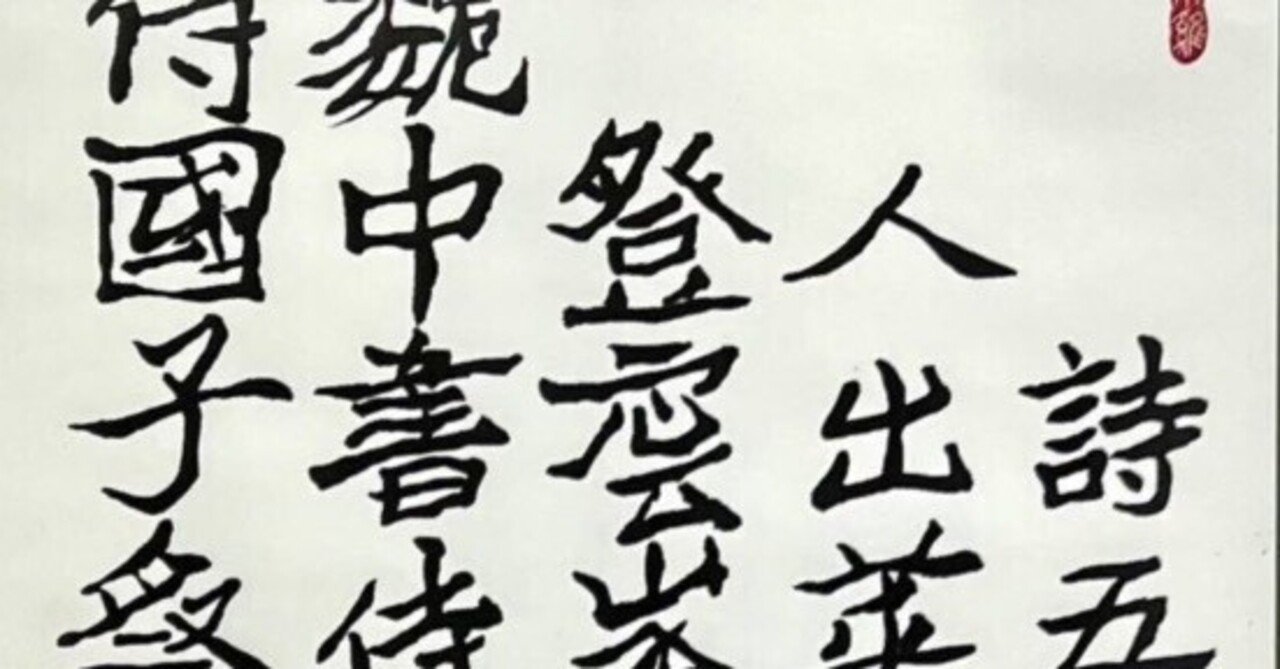 詩五
人出萊
登雲峯
魏中書侍
侍國子祭